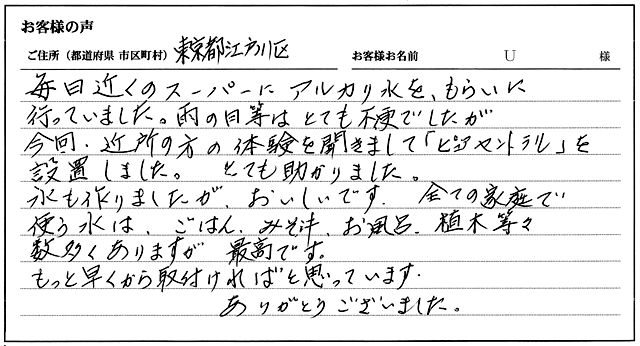 お客様の声
ご住所（都道府県 市区町村） 東京都江戸川区 お客様お名前 U 様
毎日近くのスーパーに アルカリ水を、もらいに
行っていました。雨の日等は とても不便でしたが
今回、近所の方の体験を聞きまして「ピュアセントラル」を
設置しました。 とても助かりました。
氷も作りましたが、おいしいです. 全ての家庭で
使う水は、ごはん、みそ汁、お風呂、植木等々
数多くありますが 最高です。
もっと早くから取付ければと思っています.
ありがとうございました。